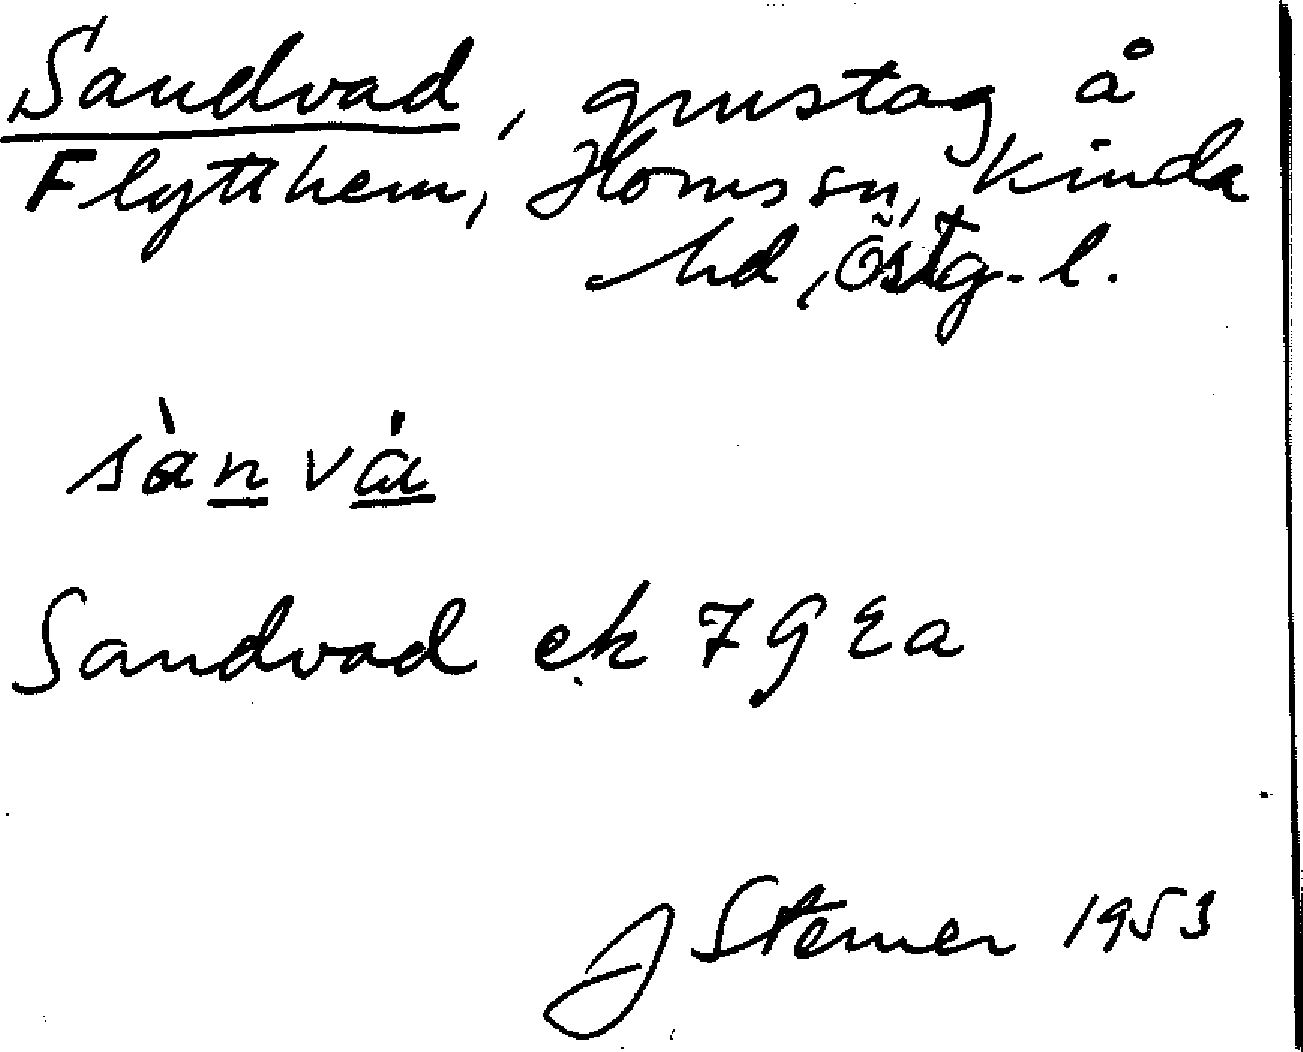 Sandvad, grustag å
Flytthem, Horns sn, Kinda
hd, Östg. l.
sàn vá
Sandvad ek 7 G 2 a
J Sterner 1953